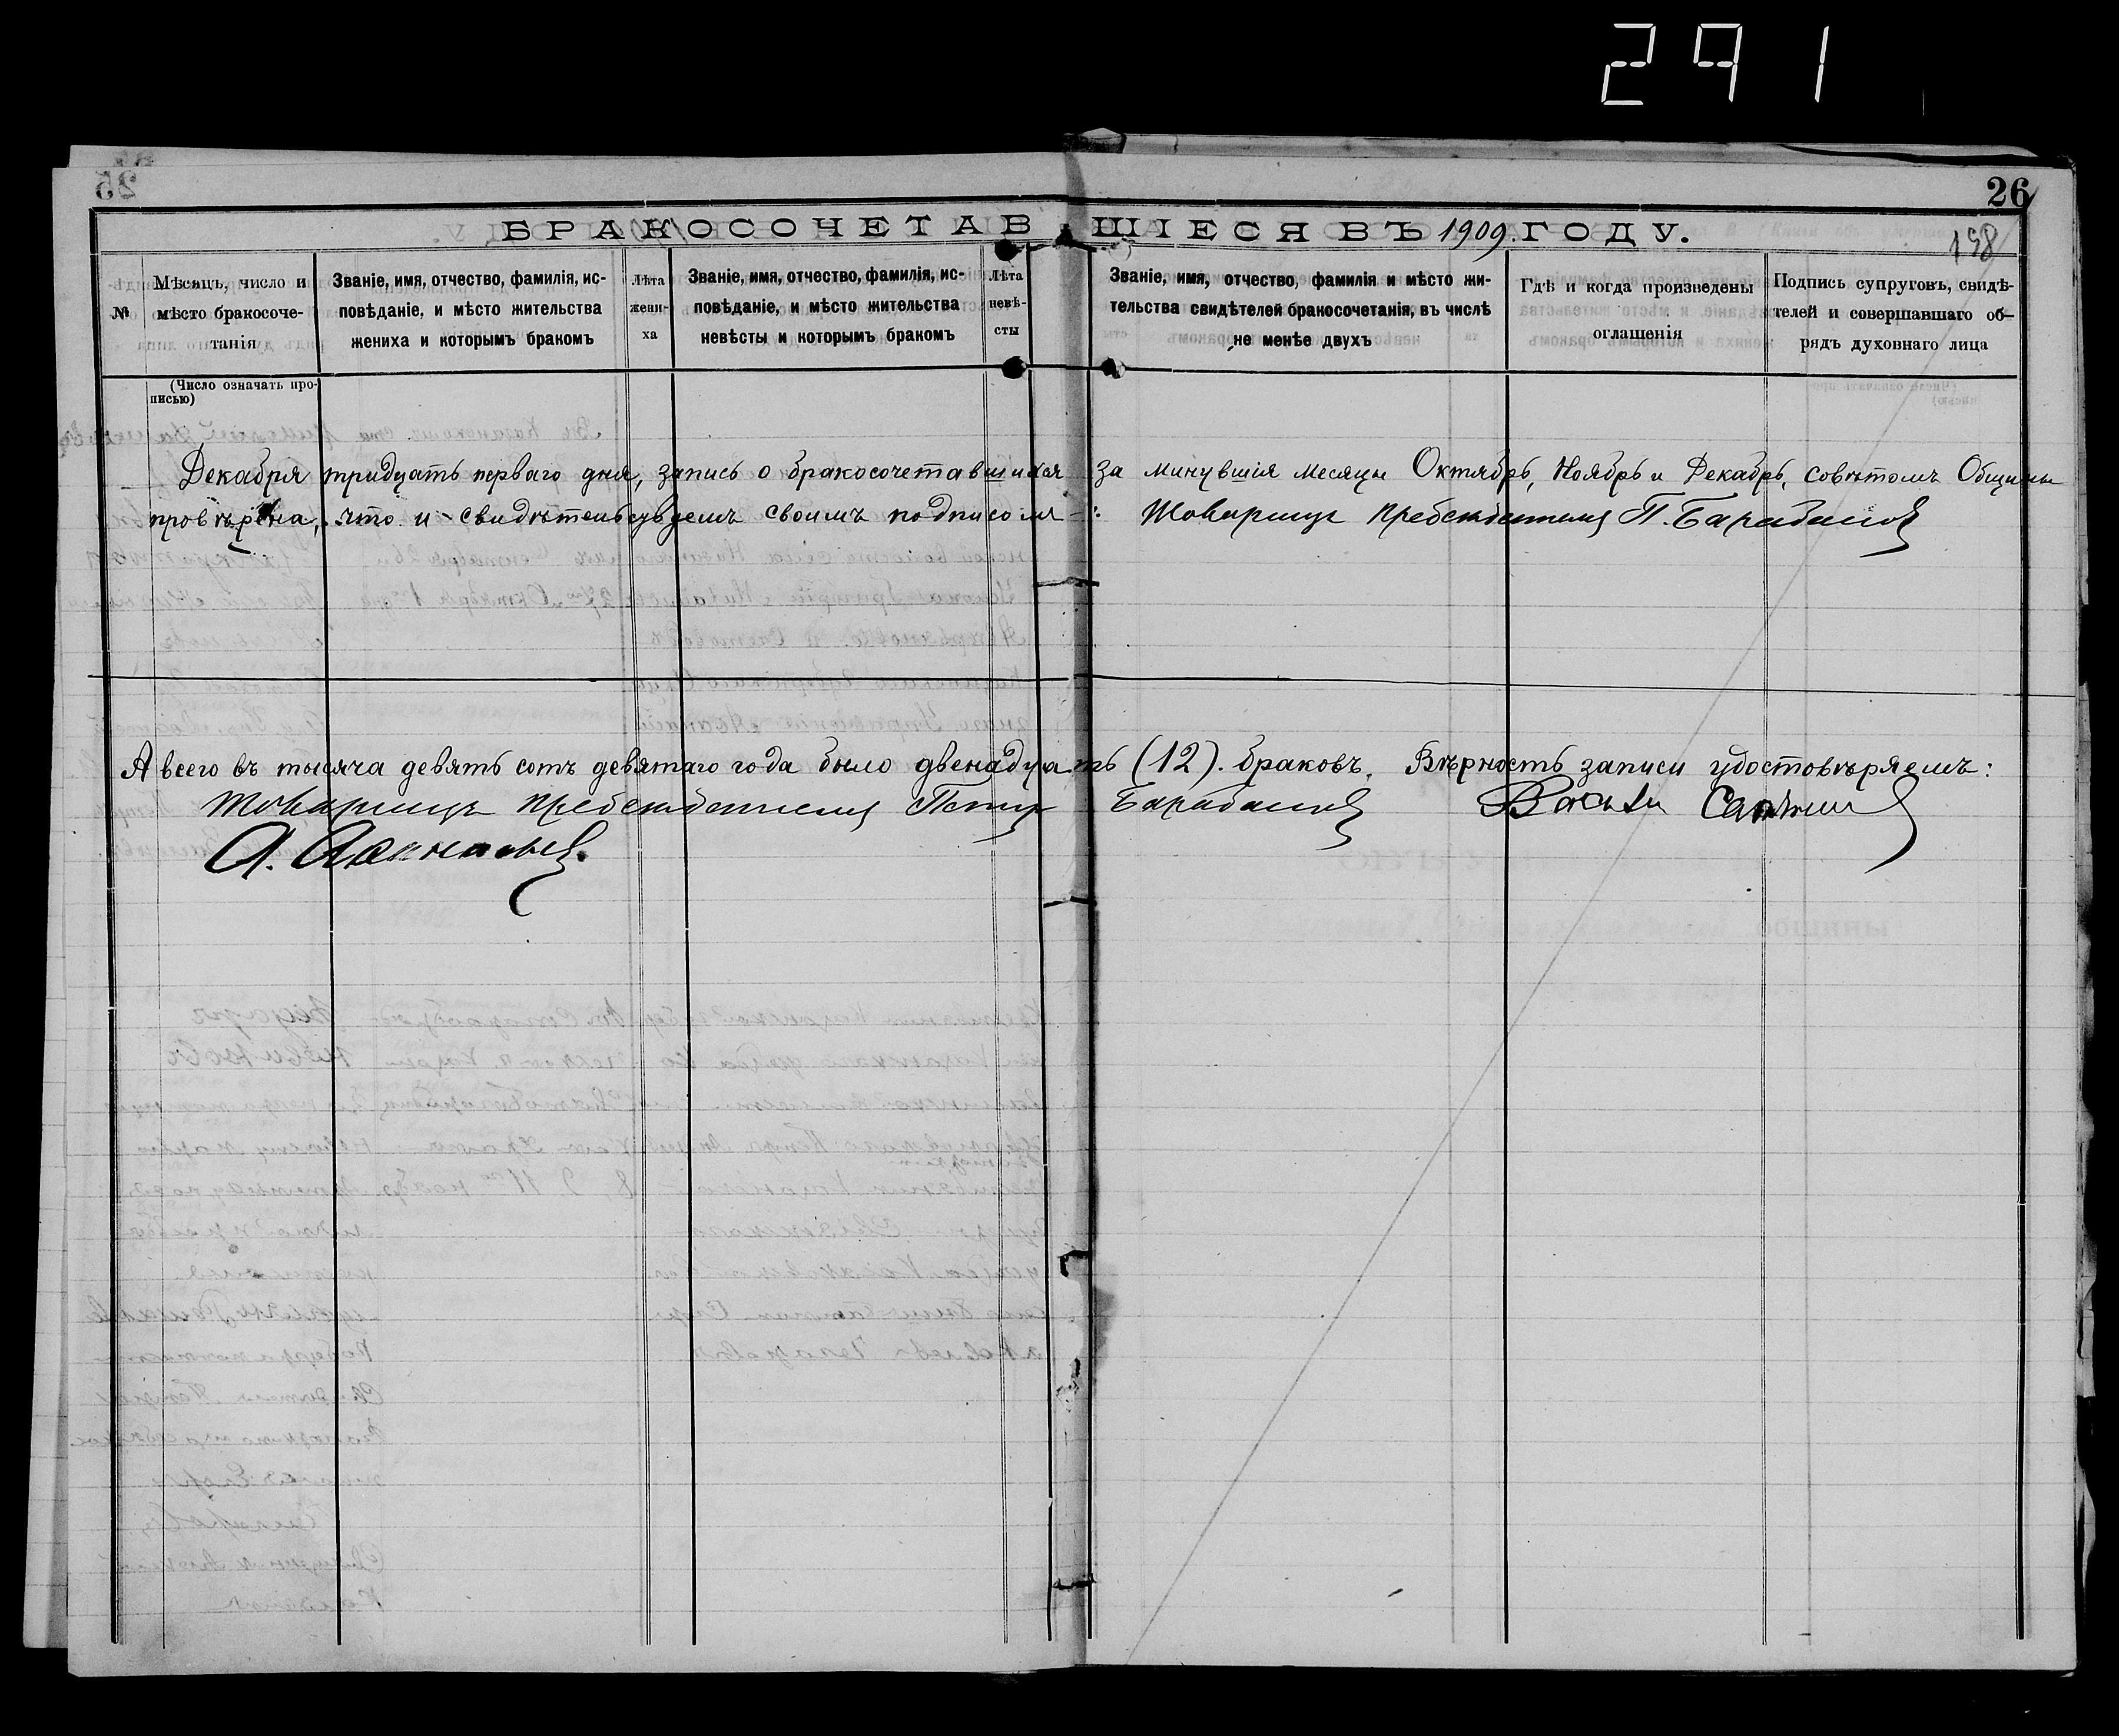 291
25
26
БРАКОСОЧЕТАВШІЕСЯ ВЪ 1909. ГОДУ.
198
№
Мѣсяцъ, число и
мѣсто бракосоче-
танія
Званіе, имя, отчество, фамилія, ис-
повѣданіе, и мѣсто жительства
жениха и которымъ бракомъ
Лѣта
жени-
ха
Званіе, имя, отчество, фамилія, ис-
повѣданіе, и мѣсто жительства
невѣсты и которымъ бракомъ
Лѣта
невѣ-
сты
Званіе, имя, отчество, фамилія и мѣсто жи-
тельства свидѣтелей бракосочетанія, въ числѣ
не менѣе двухъ
Гдѣ и когда произведены
оглашенія
Подпись супруговъ, свидѣ-
телей и совершавшаго об-
рядъ духовнаго лица
(Число означать про-
писью)
Декабря тридцать перваго дня, запись о бракосочетавшихся за минувшія месяцы Октябрь, Ноябрь и Декабрь, совѣтомъ Общины
провѣрена, что и свидѣтельсувуемъ своимъ подписомъ: Товарищъ Председателя П. Барабанов
А всего въ тысяча девять сотъ девятаго года было двенадцать (12). браковъ. Вѣрность записи удостовѣряемъ:
Товарищъ Председателя Петр Барабанов
А. Афанасьев.